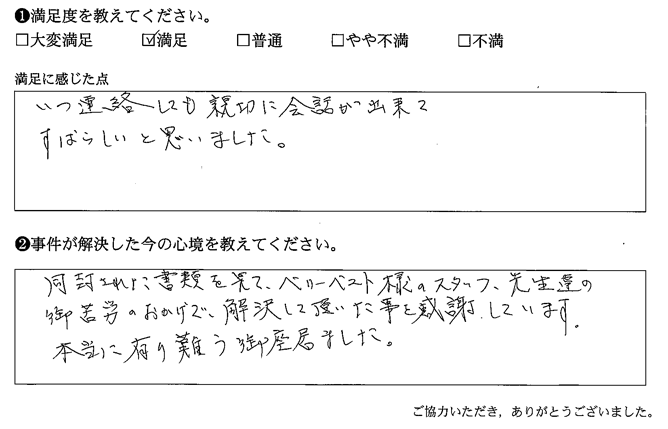 ❶満足度を教えてください。
□大変満足 ☑満足 □普通 □やや不満 □不満
満足に感じた点
いつ連絡しても親切に会話が出来て
すばらしいと思いました。
❷事件が解決した今の心境を教えてください。
同封された書類を見て、ベリーベスト様のスタッフ、先生達の
御苦労のおかげで、解決して頂いた事を感謝しています。
本当に有り難う御座居ました。
ご協力いただき，ありがとうございました。